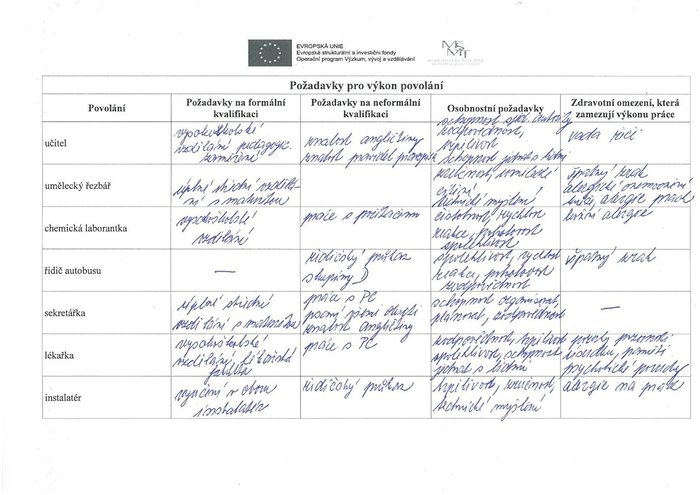 EVROPSKÁ UNIE
Evropské strukturální a investiční fondy
Operační program Výzkum, vývoj a vzdělávání
Požadavky pro výkon povolání
Povolání
Požadavky na formální kvalifikaci
Požadavky na neformální kvalifikaci
Osobnostní požadavky
Zdravotní omezení, která zamezují výkonu práce
učitel
vysokoškolské
vzdělání pedagogic.
zaměření
znalost angličtiny
znalost pravidel pravopisu
schopnost
zodpovědnost,
trpělivost
schopnost jednat s lidmi
vada řeči
umělecký řezbář
úplné střední vzdělá-
ní s maturitou
zručnost, umělecké
cítění
technické myšlení
špatný zrak
alergické onemocnění
kůže, alergie prach
chemická laborantka
vysokoškolské
vzdělání
práce s počítačem
čistotnost, rychlé
reakce, pohotovost
spolehlivost
kožní alergie
řidič autobusu
—
řidičský průkaz
skupiny D
spolehlivost, rychlost
reakcí, pohotovost
zodpovědnost
špatný zrak
sekretářka
úplné střední
vzdělání s maturitou
práce s PC
psaní všemi deseti
znalost angličtiny
schopnost organizovat,
plánovat, zodpovědnost
—
lékařka
vysokoškolské
vzdělání, lékařská
fakulta
práce s PC
zodpovědnost, trpělivost
spolehlivost, schopnost
jednat s lidmi
poruchy pozornosti
úsudku, paměti
psychotické poruchy
instalatér
vyučení v oboru
instalatér
řidičský průkaz
trpělivost, zručnost,
technické myšlení
alergie na prach